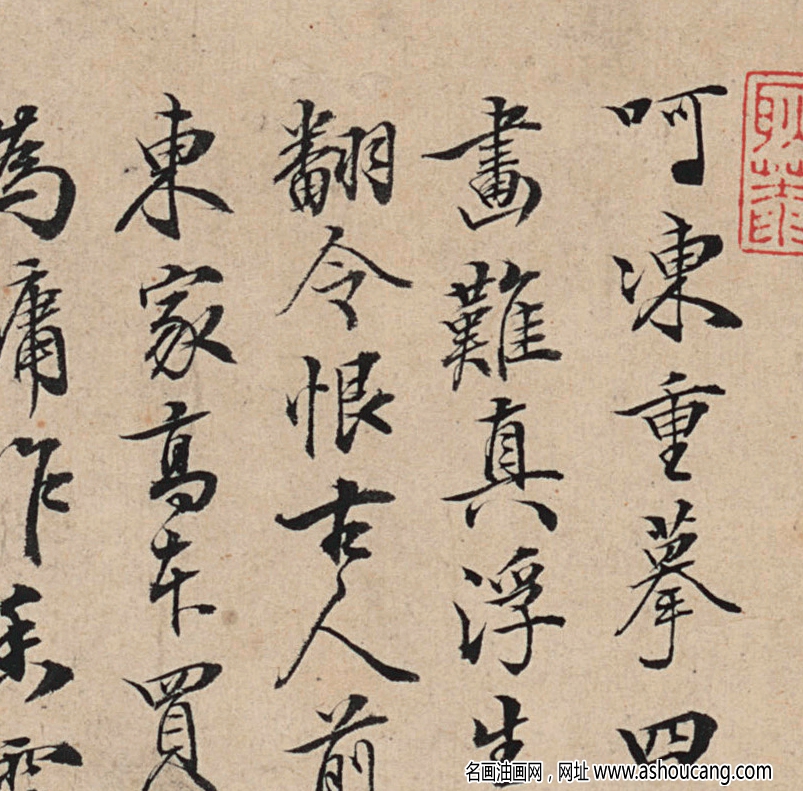 呵凍重摹四
畫難真浮生
翻令恨古人前
東家高本買
為庸作香雲
耿
名画油画网，网址 www.ashoucang.com